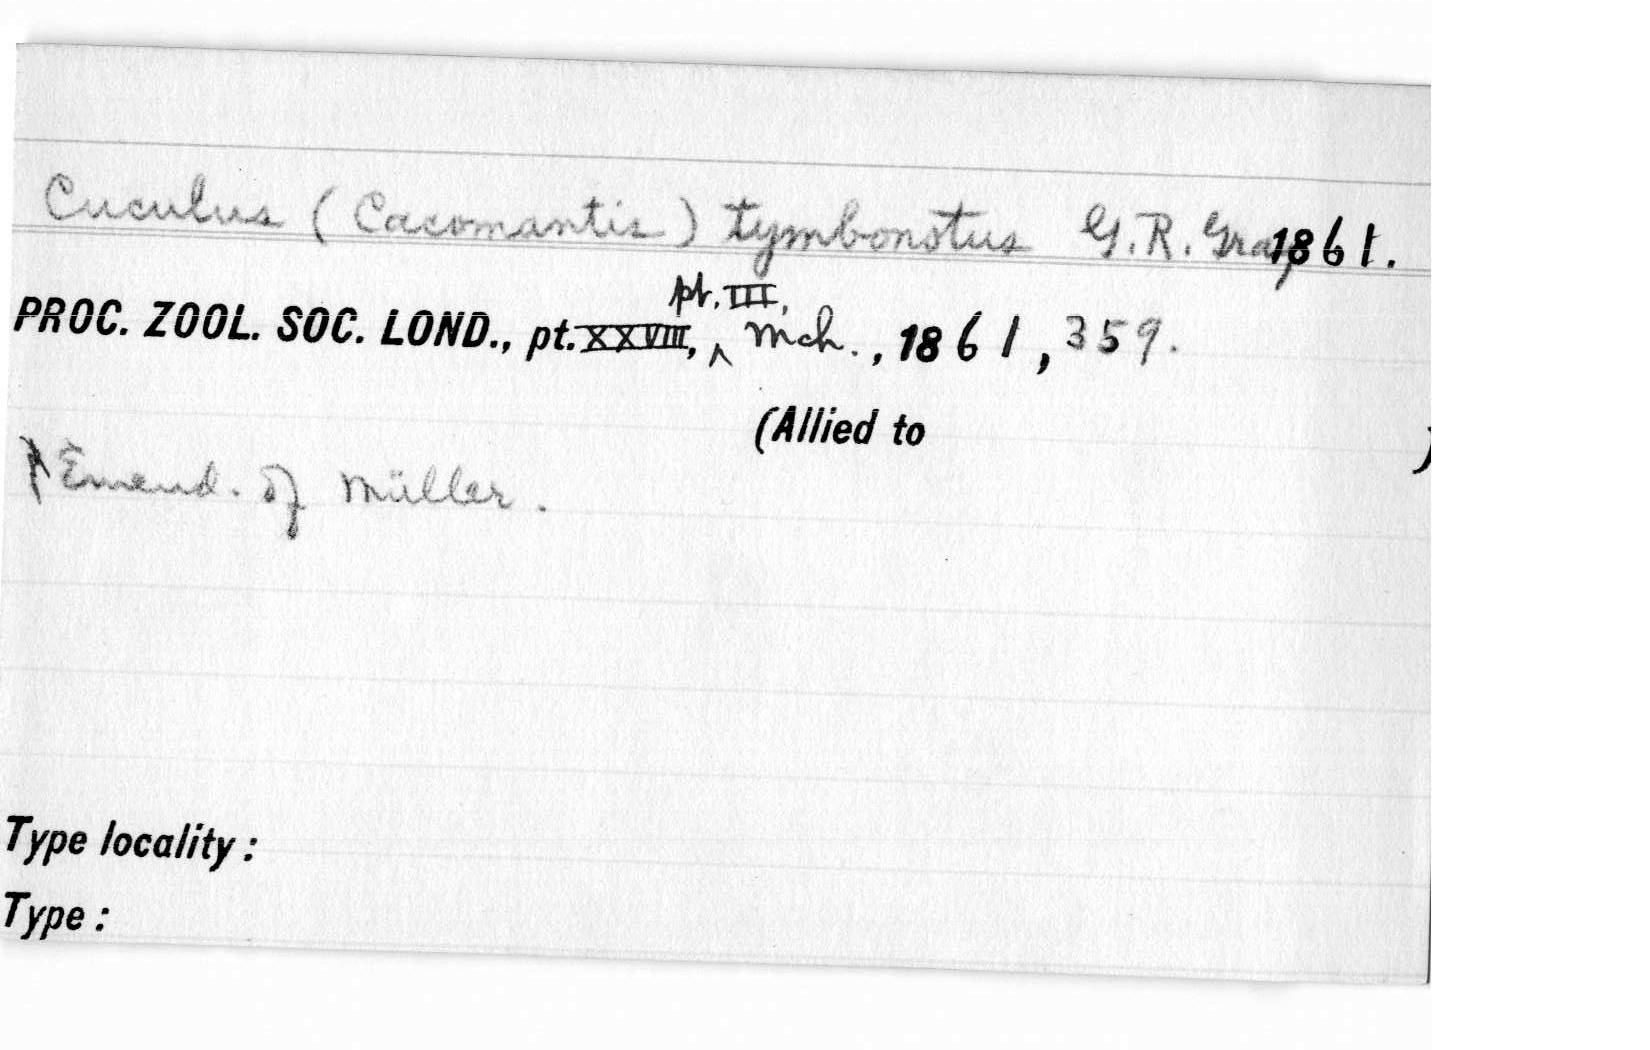 Cuculus (Cacomantis) tymbonotus G. R. Gray 1861.
pt. III,
PROC. ZOOL. SOC. LOND., pt. XXVIII, ^ Mch., 1861, 359.
(Allied to )
Emend. of Müller.
Type locality :
Type :